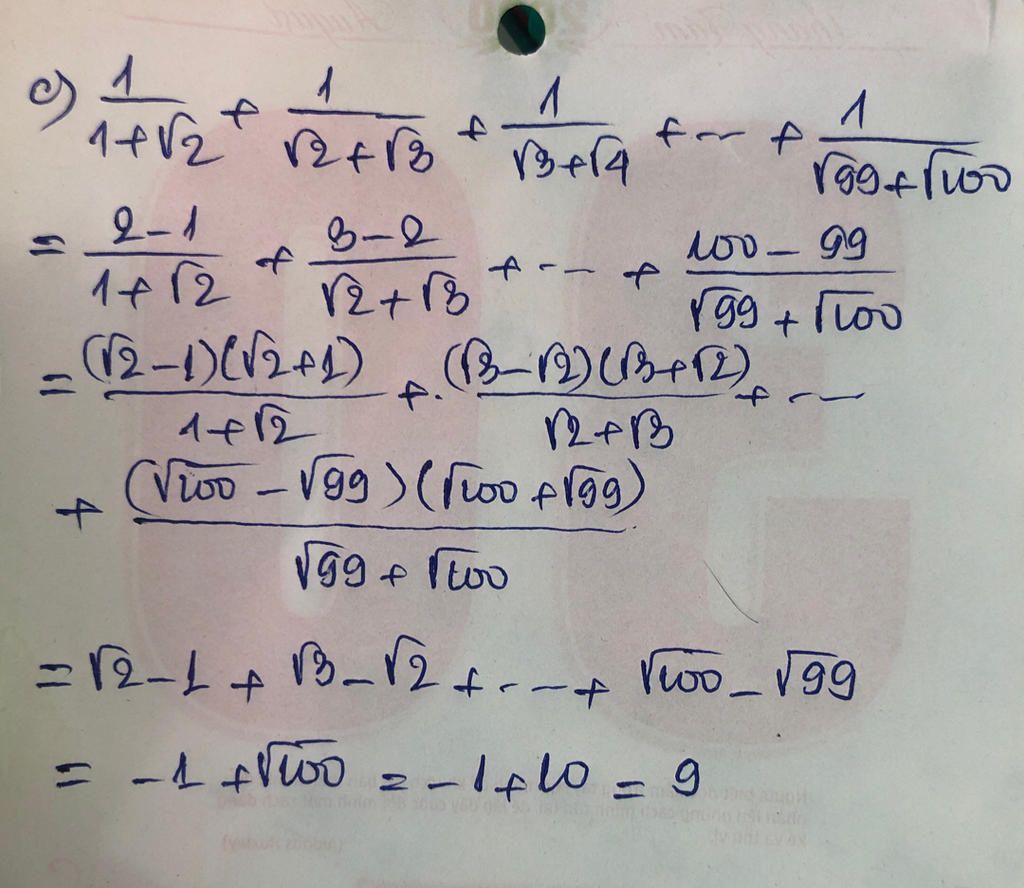 c) 1/(1+√2) + 1/(√2+√3) + 1/(√3+√4) + ... + 1/(√99+√100)
= (2-1)/(1+√2) + (3-2)/(√2+√3) + ... + (100-99)/(√99+√100)
= (√2-1)(√2+1)/(1+√2) + (√3-√2)(√3+√2)/(√2+√3) + ...
+ (√100-√99)(√100+√99)/(√99+√100)
= √2-1 + √3-√2 + ... + √100-√99
= -1+√100 = -1+10 = 9